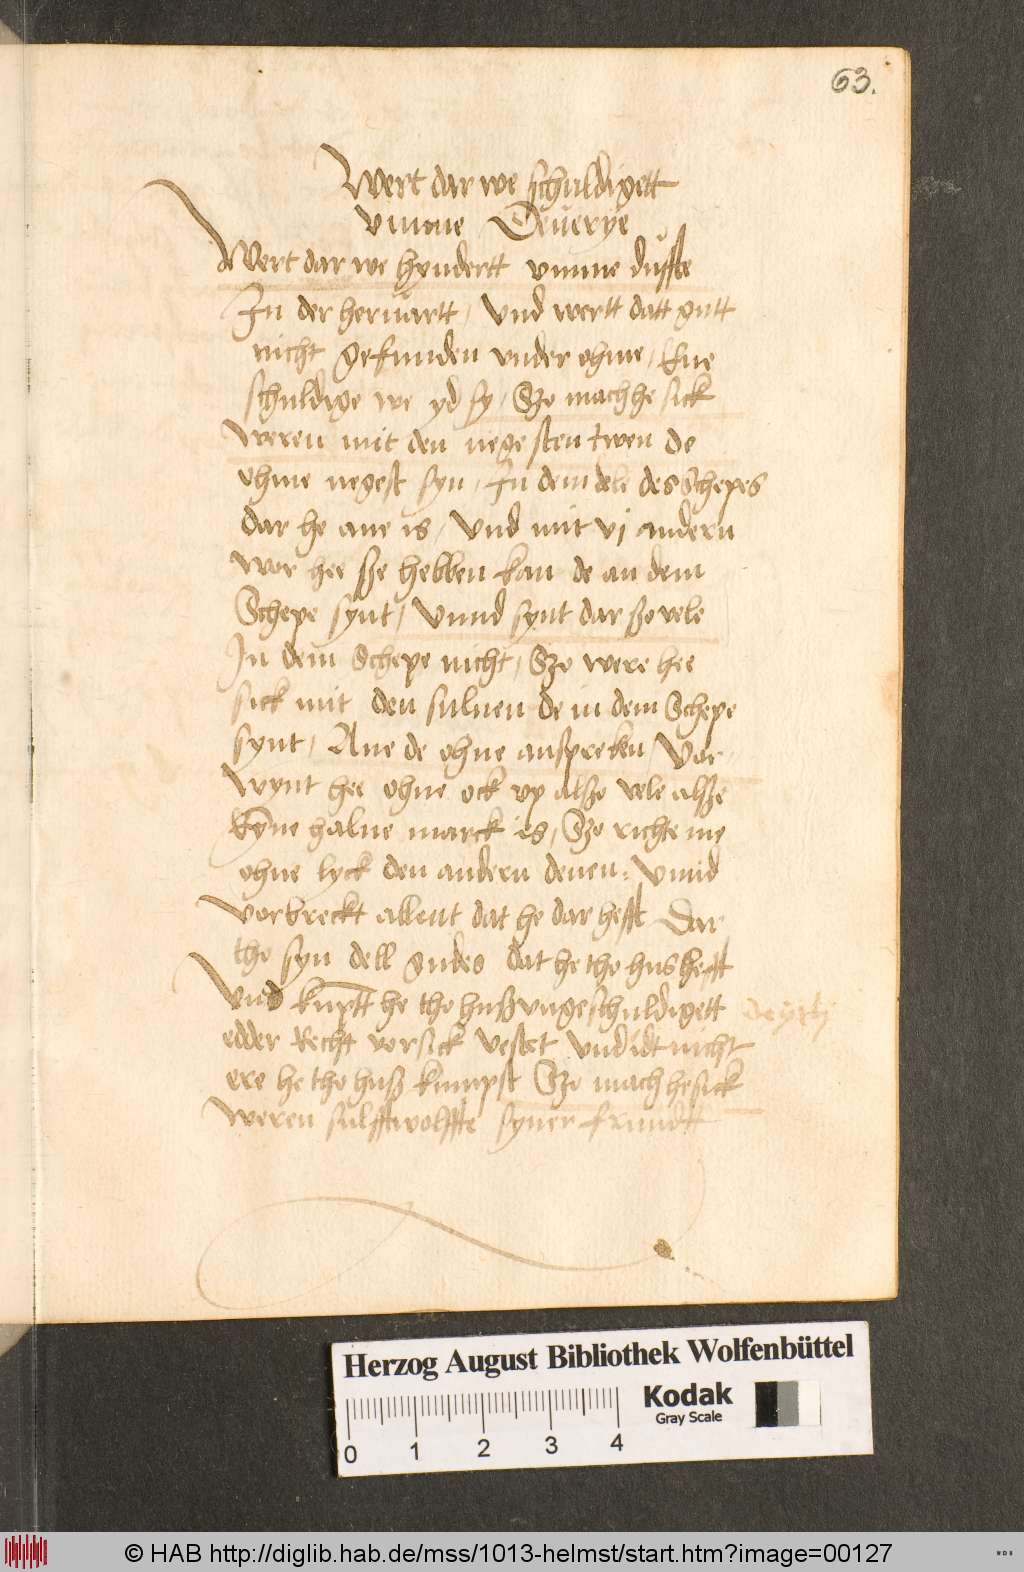 63.
Wert dar we schuldigett
vmme Deuerye
Wert dar we hyndertt vmme duffte
In der heruartt, Vnd wertt datt gutt
nicht gefunden vnder ohme, Ene
schuldige we yd sy, Szo mach he sick
weren mit den negesten twen de
ohme negest syn, In dem dele des Schepes
dar he ane is, Vnd mit vj andern
wor hee sze hebben kan de an dem
Schepe synt, Vnnd synt dar szo vele
In dem Schepe nicht, Szo were hee
sick mit den suluen de in dem Schepe
synt, Ane de ohne anspreken Vor-
wynt hee ohne ock vp alsze vele alsze
eyne halue marck is, Szo richte me
ohne lyck den andern deuen. Vnnd
vorbreckt allent dat he dar hefft Dar
tho syn dell gudes dat he tho hus hefft
Vnd kumptt he tho husz vngeschuldigett
edder Recht vor sick vestet Vnd idt nicht
ere he tho husz kumpst Szo mach he sick
weren sulfftwolffte syner frundt
Herzog August Bibliothek Wolfenbüttel
0 1 2 3 4
Kodak
Gray Scale
© HAB http://diglib.hab.de/mss/1013-helmst/start.htm?image=00127